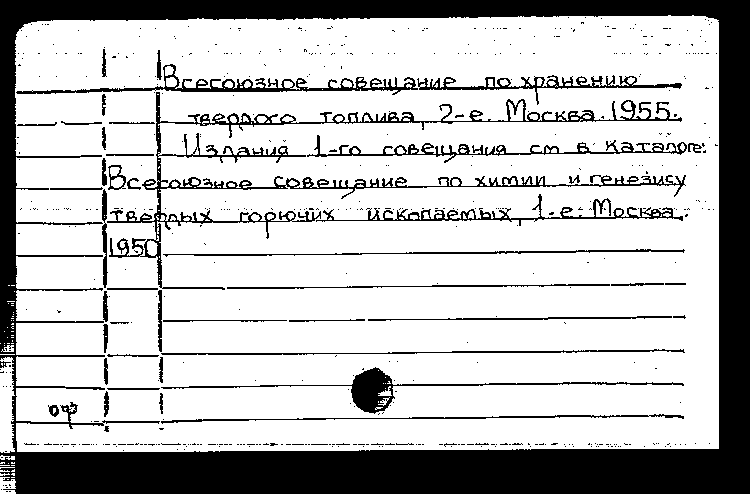 Всесоюзное совещание по хранению
твердого топлива, 2-е. Москва. 1955.
Издания 1-го совещания см в каталоге:
Всесоюзное совещание по химии и генезису
твердых горючих ископаемых, 1-е. Москва.
1950